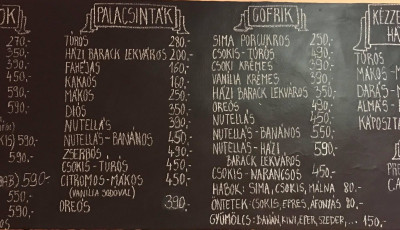 OK
270.-
350.-
390.-
450.-
350.-
590.-
590.-
590.-
590.-
590.-
590.-
PALACSINTÁK
TÚRÓS 280.-
HÁZI BARACK LEKVÁROS 200.-
FAHÉJAS 160.-
KAKAÓS 160.-
MÁKOS 250.-
DIÓS 350.-
NUTELLÁS 390.-
NUTELLÁS-BANÁNOS 450.-
ZSERBÓS 490.-
CSOKIS-TÚRÓS 450.-
CITROMOS-MÁKOS 450.-
(VANÍLIA SODÓVAL)
OREÓS 390.-
GOFRIK
SIMA PORCUKROS 250.-
CSOKIS-TÚRÓS
CSOKI KRÉMES 390.-
VANÍLIA KRÉMES 390.-
HÁZI BARACK LEKVÁROS 350.-
OREÓS 490.-
NUTELLÁS 450.-
NUTELLÁS-BANÁNOS 550.-
NUTELLÁS-HÁZI 590.-
BARACK LEKVÁROS
CSOKIS-NARANCSOS 450.-
HABOK: SIMA, CSOKIS, MÁLNA 80.-
ÖNTETEK: CSOKIS, EPRES, ÁFONYÁS 80.-
GYÜMÖLCS: BANÁN, KIWI, EPER, SZEDER, ... 150.-
KÉZZE
HÁ
TÚRÓS
MÁKOS-M
DARÁS-M
ALMÁS-
KÁPOSZTÁ